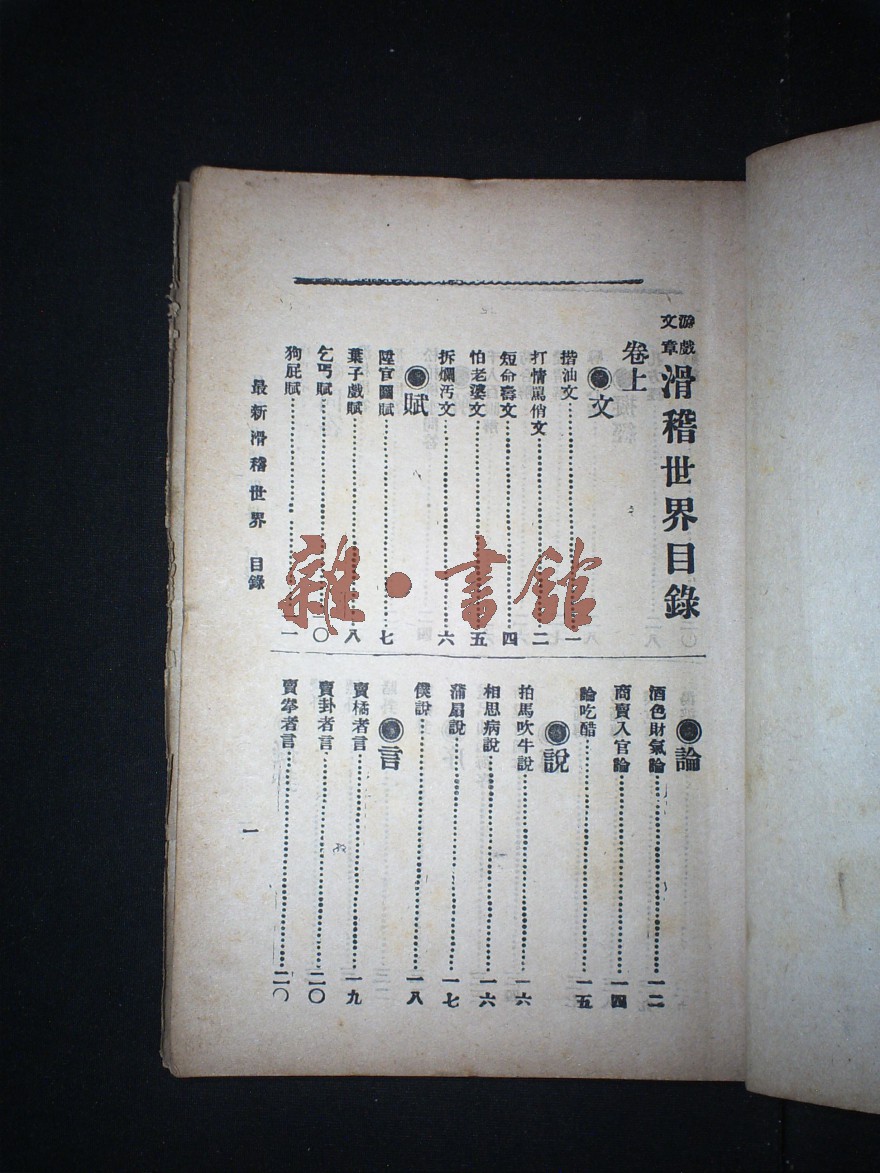 游戲文章 滑稽世界目錄
卷上
●文
揩油文…一
打情罵俏文…二
短命壽文…四
怕老婆文…五
拆爛汚文…六
●賦
陞官圖賦…七
葉子戲賦…八
乞丐賦…一〇
狗屁賦…一
●論
酒色財氣論…一二
商賣入官論…一四
論吃醋…一五
●說
拍馬吹牛說…一六
相思病說…一六
蒲扇說…一七
僕說…一八
●言
賣橘者言…一九
賣卦者言…二〇
賣拳者言…二〇
最新滑稽世界 目錄
一
雜·書館